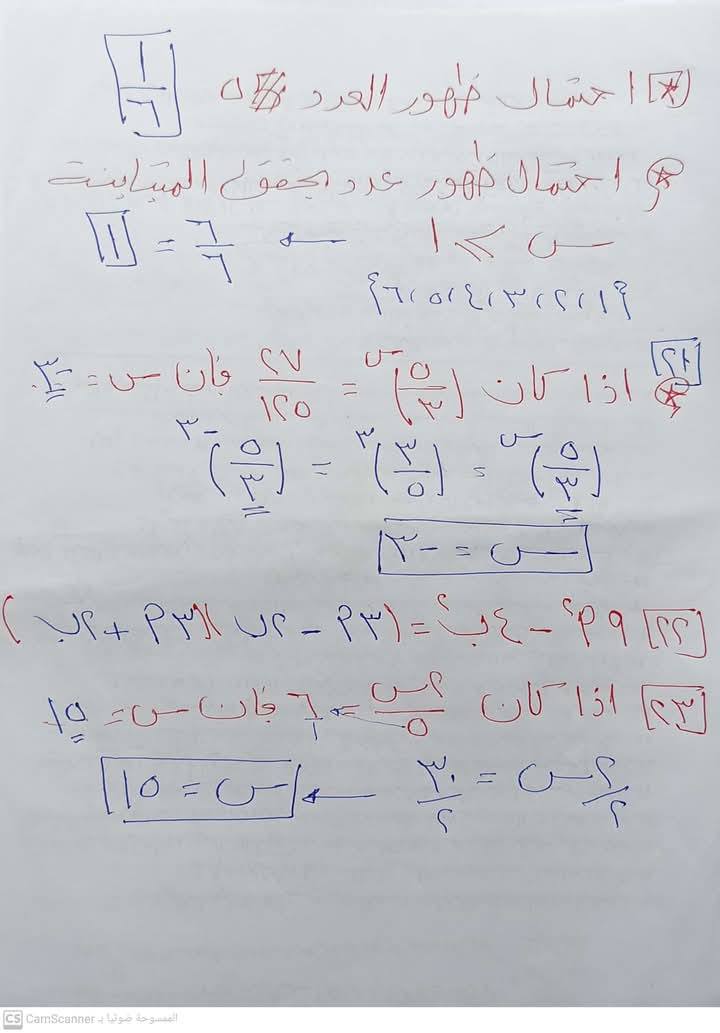 * احتمال ظهور العدد ٥ = ١/٦
* احتمال ظهور عدد يحقق المتباينة
س ≥ ١ ← ٦/٦ = ١
{١، ٢، ٣، ٤، ٥، ٦}
[٢١] * اذا كان (٥/٣)^س = ٢٧/١٢٥ فإن س = -٣
(٥/٣)^س = (٣/٥)^٣ = (٥/٣)^-٣
س = -٣
[٢٢] ٩أ² - ٤ب² = (٣أ - ٢ب)(٣أ + ٢ب)
[٢٣] اذا كان ٢س/٥ = ٦/١ فان س = ١٥
٢س/٢ = ٣٠/٢ ← س = ١٥
CS CamScanner الممسوحة ضوئيا بـ